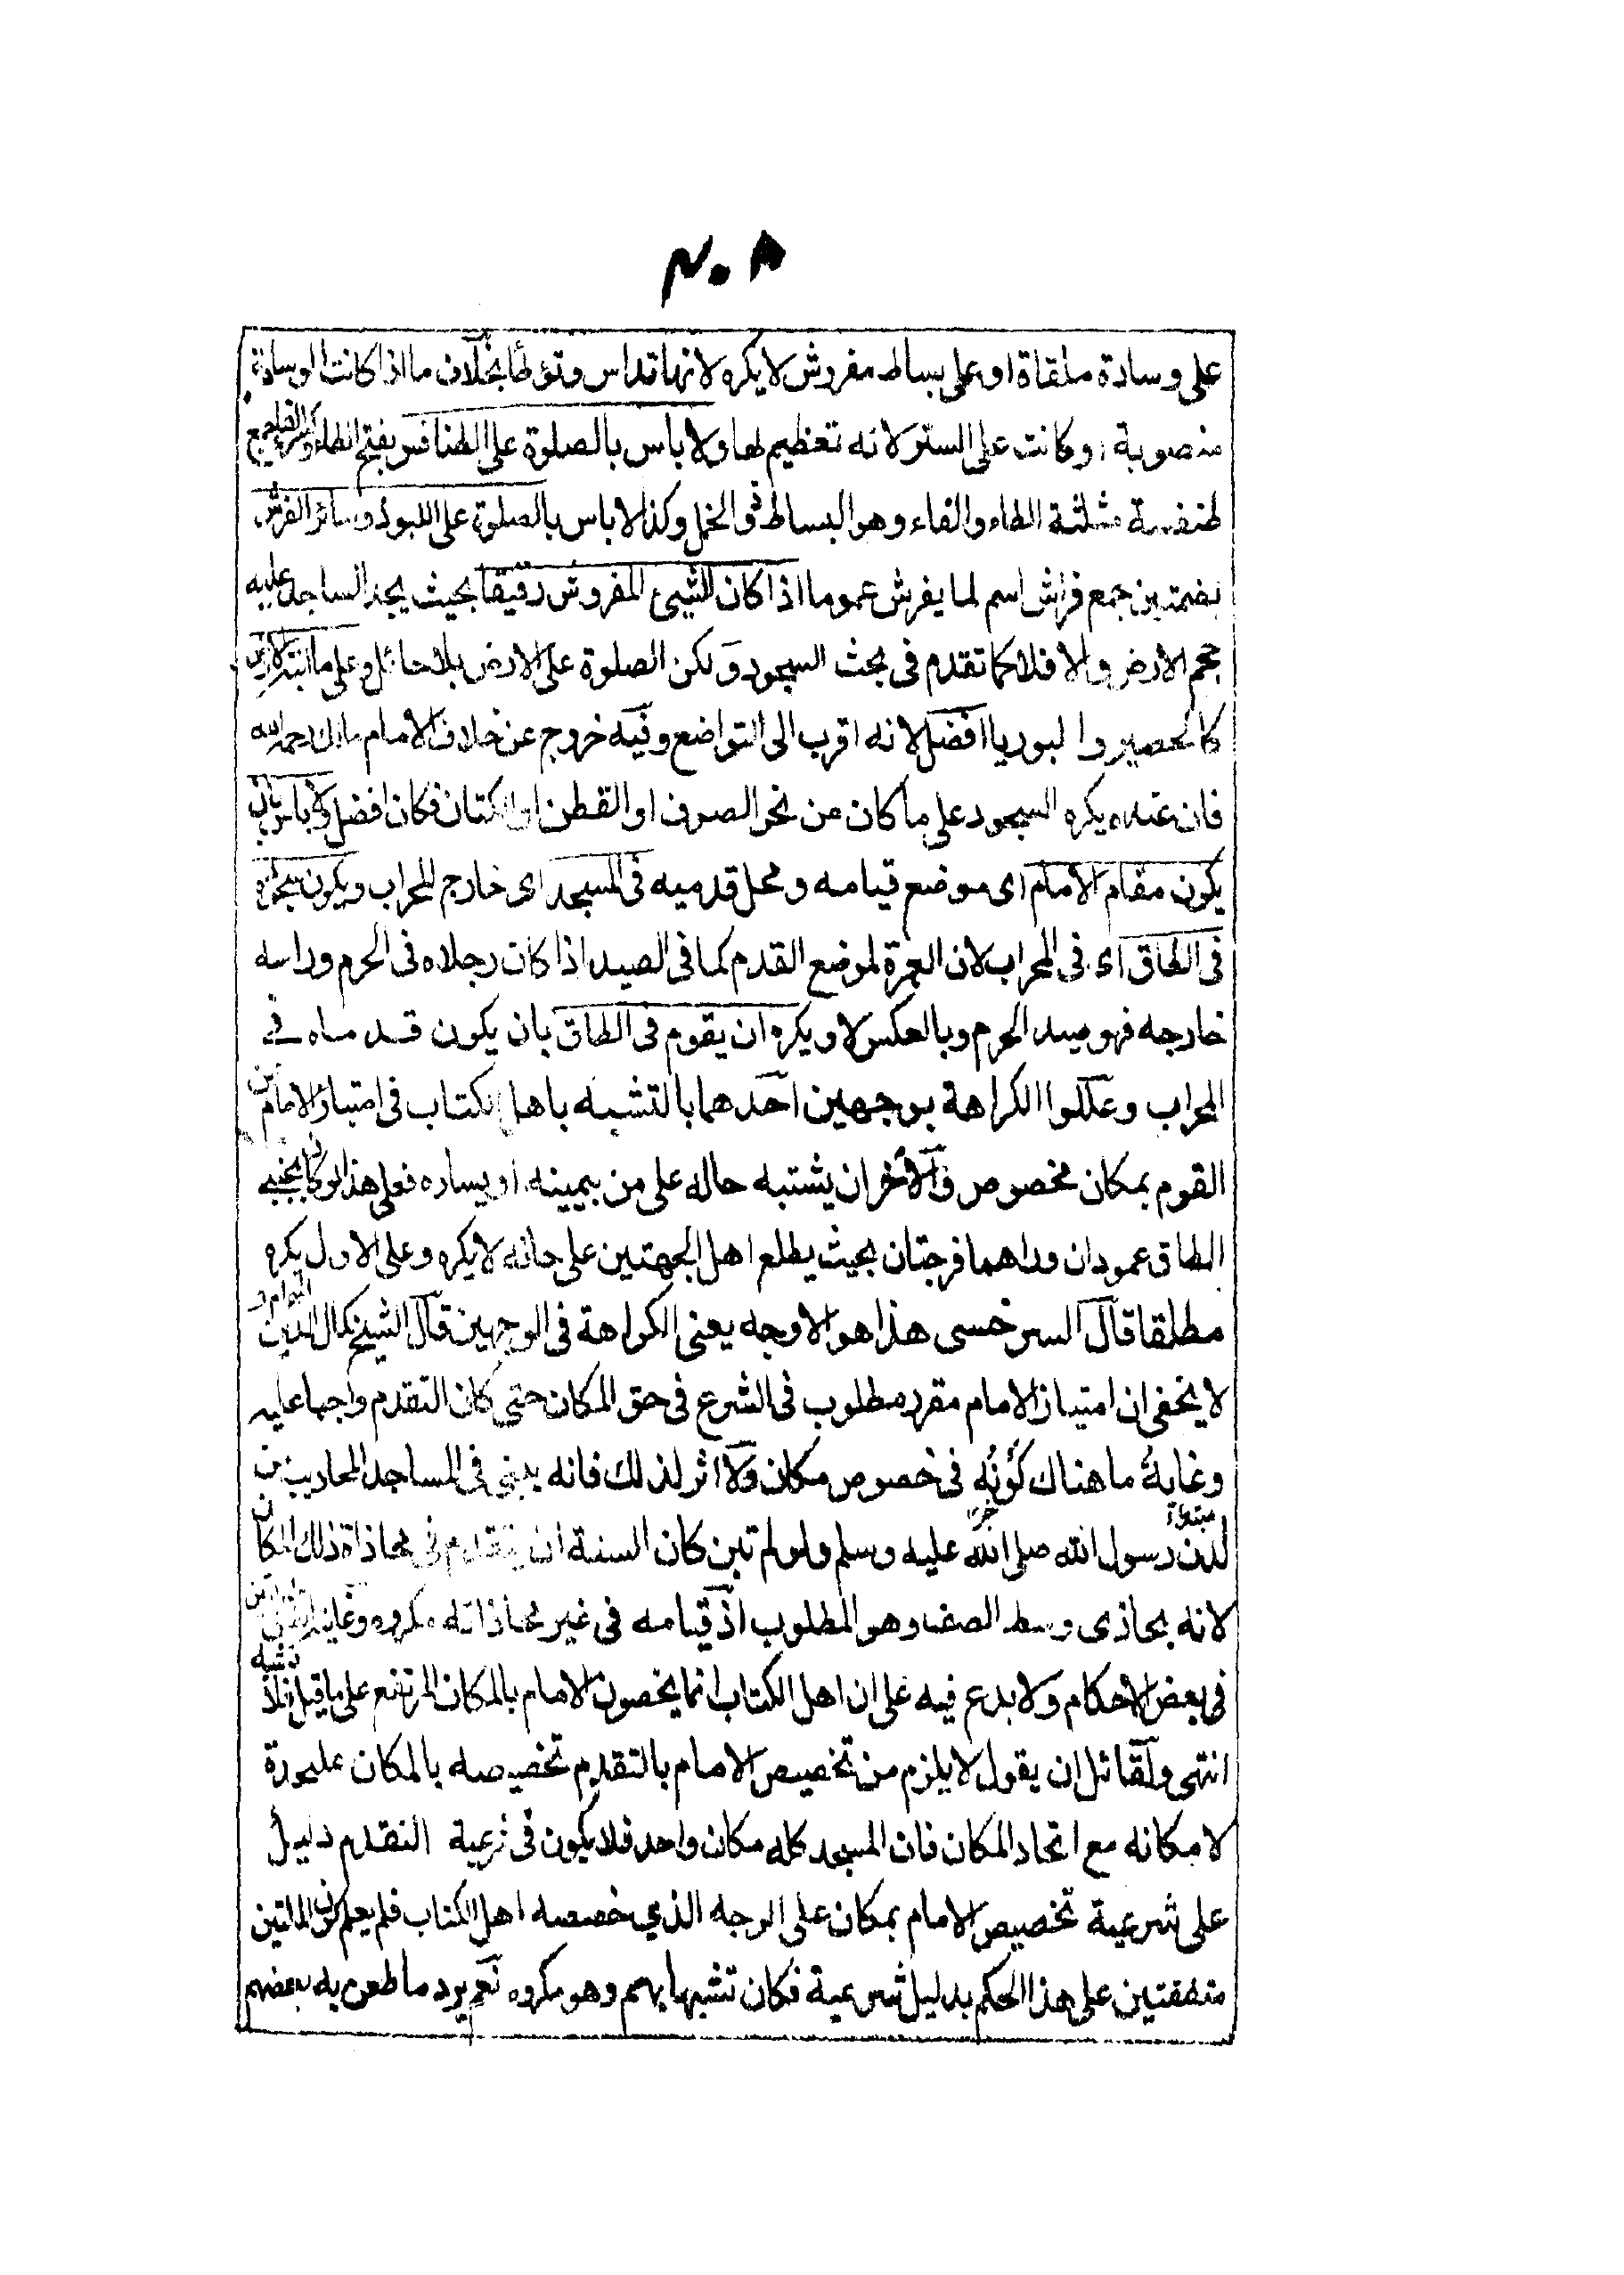 ٣٠٨
على وسادة ملقاة او على بساط مفروش لا يكره لانها تداس وتوطأ بخلاف ما اذا كانت الوسادة
منصوبة او كانت على الستر لانه تعظيم لها ولا باس بالصلوة على الطنافس بفتح الطاء وكسر الفاء جمع
طنفسة مثلثة الطاء والفاء وهو البساط ذو الخمل وكذا لا باس بالصلوة على اللبود وسائر الفرش
بضمتين جمع فراش اسم لما يفرش عموما اذا كان الشيئ المفروش رقيقا بحيث يجد الساجد عليه
حجم الارض والا فلا كما تقدم فى بحث السجود ولكن الصلوة على الارض بلا حائل وعلى ما انبتته الارض
كالحصير والبوريا افضل لانه اقرب الى التواضع وفيه خروج عن خلاف الامام مالك رحمه الله
فان عنده يكره السجود على ما كان من نحو الصوف او القطن او الكتان فكان افضل ولا باس بان
يكون مقام الامام اى موضع قيامه ومحل قدميه فى المسجد اى خارج المحراب ويكون سجوده
فى الطاق اى فى المحراب لان العبرة لموضع القدم كما فى الصيد اذا كان رجلاه فى الحرم وراسه
خارجه فهو صيد الحرم وبالعكس لا ويكره ان يقوم فى الطاق بان يكون قدماه في
المحراب وعللوا الكراهة بوجهين احدهما بالتشبه باهل الكتاب فى امتياز الامام من
القوم بمكان مخصوص والآخر ان يشتبه حاله على من بيمينه او يساره فعلى هذا لو كان بجنبى
الطاق عمودان وراهما فرجتان بحيث يطلع اهل الجهتين على حاله لا يكره وعلى الاول يكره
مطلقا قال السرخسى هذا هو الاوجه يعنى الكراهة فى الوجهين قال الشيخ كمال الدين
لا يخفى ان امتياز الامام مقرر مطلوب فى الشرع فى حق المكان حتى كان التقدم واجبا عليه
وغاية ما هناك كونه فى خصوص مكان ولا اثر لذلك فانه بنى فى المساجد المحاريب من
لدن رسول الله صلى الله عليه وسلم ولو لم تبن كان السنة ان يتقدم فى محاذاة ذلك المكان
لانه يحاذى وسط الصف وهو المطلوب اذ قيامه فى غير محاذاته مكروه وغايته
فى بعض الاحكام ولا بدع فيه على ان اهل الكتاب انما يخصون الامام بالمكان المرتفع على ما قيل فلا تشبه
انتهى ولقائل ان يقول لا يلزم من تخصيص الامام بالتقدم تخصيصه بالمكان على حدة
لامكانه مع اتحاد المكان فان المسجد كله مكان واحد فلا يكون فى شرعية التقدم دليل
على شرعية تخصيص الامام بمكان على الوجه الذي خصصه اهل الكتاب فلم يعلم كون الملتين
متفقتين على هذا الحكم بدليل شرعية فكان تشبها بهم وهو مكروه نعم يرد ما طعن به بعضهم